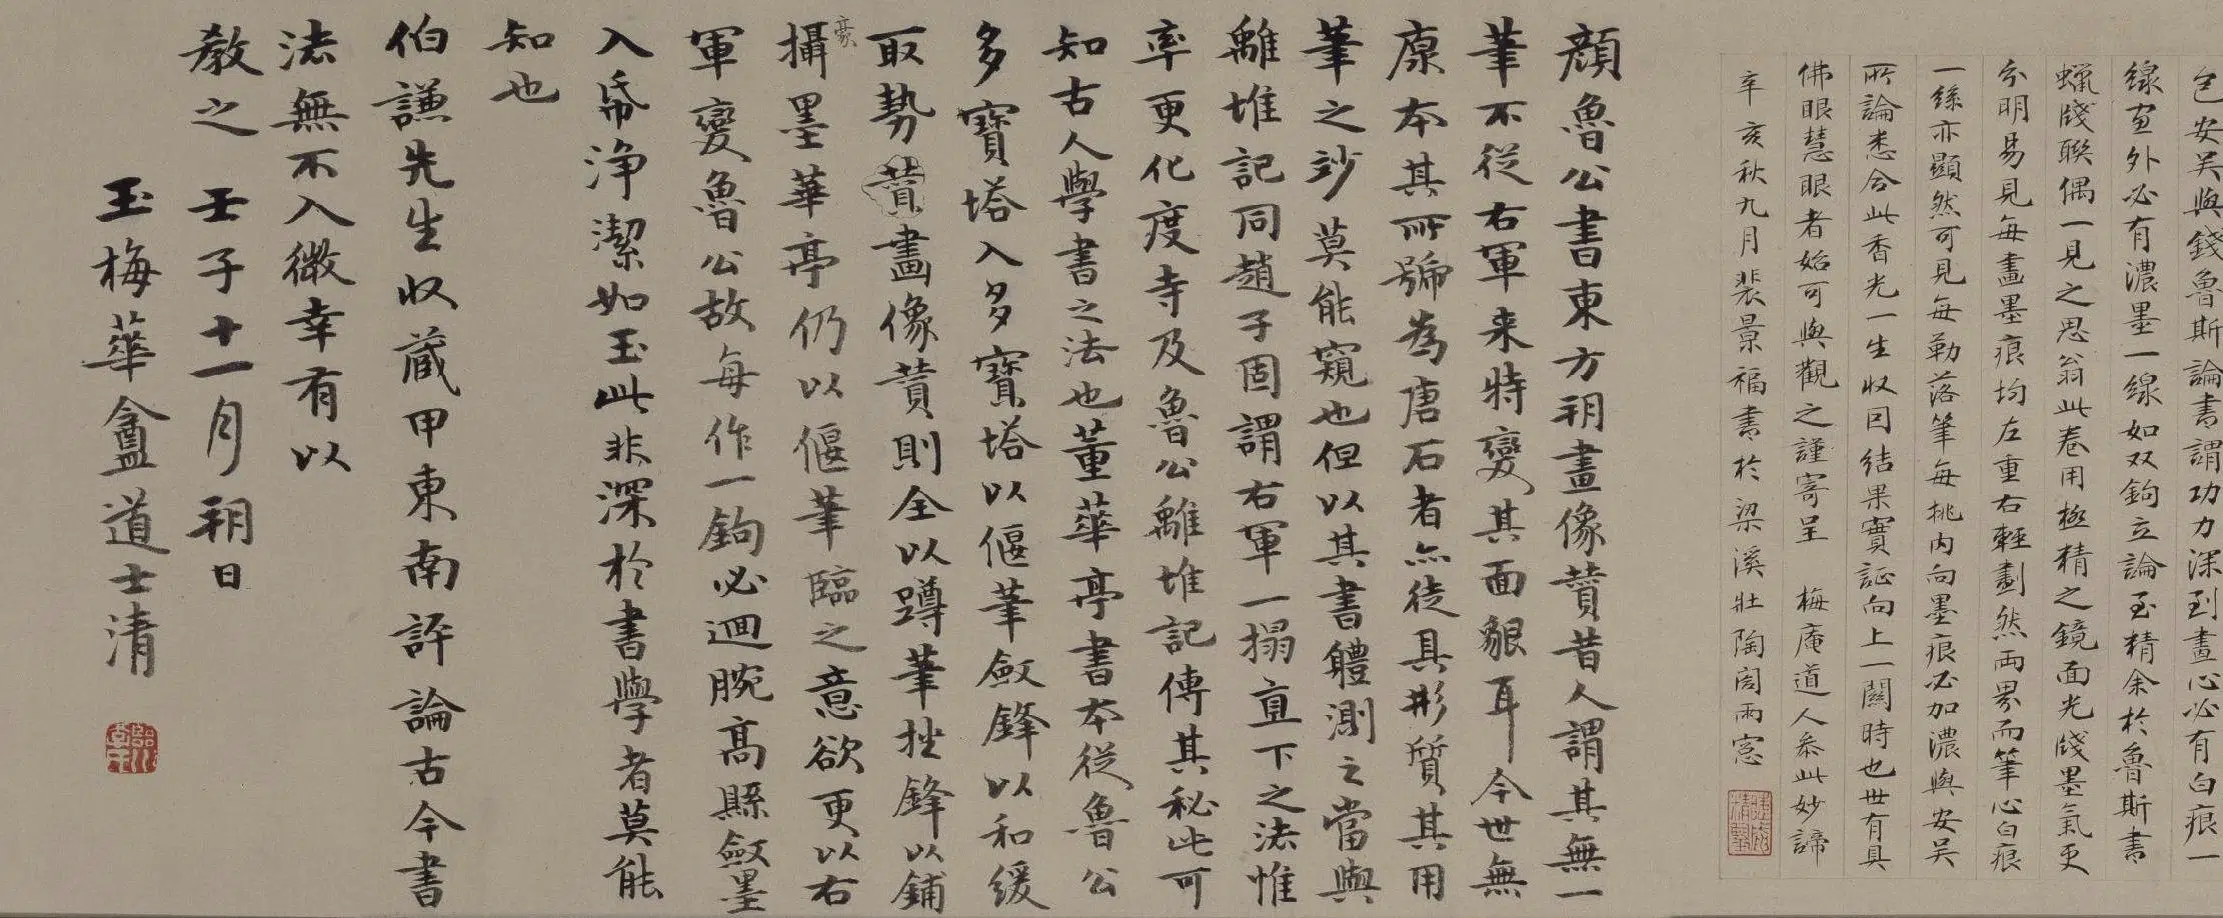 包安吳與錢魯斯論書謂功力深到畫心必有白痕一
線畫外必有濃墨一線如双鉤立論至精余於魯斯書
蠟牋聯偶一見之思翁此卷用極精之鏡面光牋墨氣更
分明易見每畫墨痕均左重右輕劃然兩界而筆心白痕
一絲亦顯然可見每勒落筆每挑內向墨痕必加濃與安吳
所論悉合此香光一生收因結果實証向上一關時也世有具
佛眼慧眼者始可與觀之謹寄呈 梅庵道人叅此妙諦
辛亥秋九月裴景福書於梁溪壯陶閣雨窓
顏魯公書東方朔畫像贊昔人謂其無一
筆不從右軍来特變其面貌耳今世無
原本其所號為唐石者亦徒具形質其用
筆之妙莫能窺也但以其書體測之當與
離堆記同趙子固謂右軍一搨直下之法惟
率更化度寺及魯公離堆記傳其秘此可
知古人學書之法也董華亭書本從魯公
多寶塔入多寶塔以偃筆斂鋒以和緩
取勢贊畫像贊則全以蹲筆挫鋒以鋪
豪
攝墨華亭仍以偃筆臨之意欲更以右
軍變魯公故每作一鉤必迴腕高縣斂墨
入帋淨潔如玉此非深於書學者莫能
知也
伯謙先生收蔵甲東南評論古今書
法無不入微幸有以
教之 壬子十一月朔日
玉梅華盦道士清